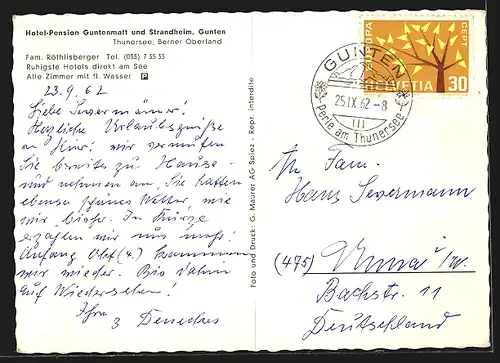 Hotel-Pension Guntenmatt und Strandheim, Gunten
Thunersee, Berner Oberland
Fam. Röthlisberger Tel. (033) 7 35 33
Ruhigste Hotels direkt am See
Alle Zimmer mit fl. Wasser P
23.9.62
Liebe
Herzliche Urlaubsgrüße
an Hier! Wir vermuten
Sie bereits zu Hause
und nehmen an, Sie hatten
ebenso schönes Wetter, wie
wir bisher. In Kürze
erzählen wir uns mehr!
Anfang Okt. (4.) kommen
wir wieder. Bis dahin
auf Wiedersehen!
Ihre
3
Foto und Druck: G. Maurer AG Spiez - Repr. interdite
GUNTEN
25.IX.62-8
III
Perle am Thunersee
EUROPA
CEPT
HELVETIA 30
An Fam.
Hans Severmann
(475) Unna i/W.
Bachstr. 11
Deutschland